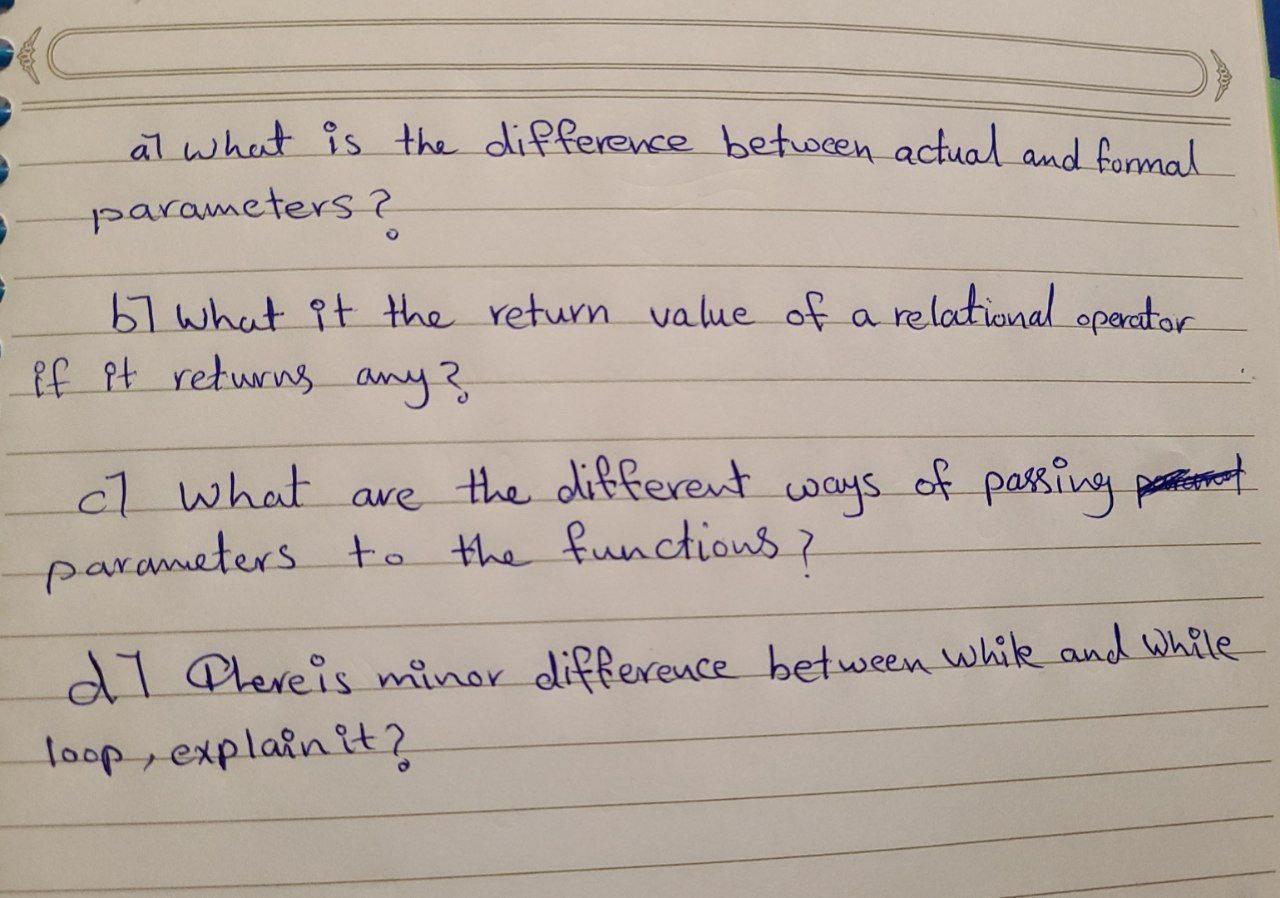 a] What is the difference between actual and formal
parameters?
b] What it the return value of a relational operator
if it returns any?
c] What are the different ways of passing
parameters to the functions?
d] There is minor difference between while and while
loop, explain it?